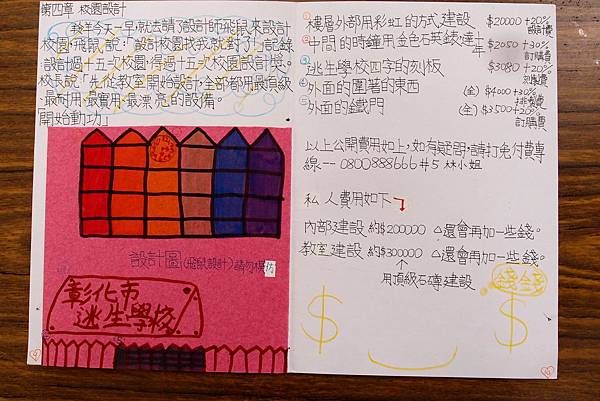 第四章 校園設計
羚羊今天一早就去請了設計師飛鼠來設計
校園,飛鼠說:「設計校園找我就對了!」記錄
:設計過十五次校園,得過十五次校園設計獎。
校長說「先從教室開始設計,全部都用最頂級
、最耐用、最實用、最漂亮的設備。
「開始動功」
設計圖(飛鼠設計)請勿模仿
彰化市
逃生學校
①樓層外部用彩虹的方式建設 $20000+20%
設計費
②中間的時鐘用金色石英錶,達十年 $2050+30%
訂購費
③逃生學校四字的刻板 $3080+20%
刻製費
④外面的圍著的東西 (全)$4000+30%
排製費
⑤外面的鐵門 (全)$3500+20%
訂購費
以上公開費用如上,如有疑問,請打免付費專
線--0800888666#5 林小姐
私人費用如下
內部建設 約$200000 △還會再加一些錢。
教室建設 約$300000 △還會再加一些錢。
↑
用頂級石磚建設
$ $